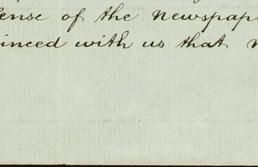 lense of the newspap
inced with us that n